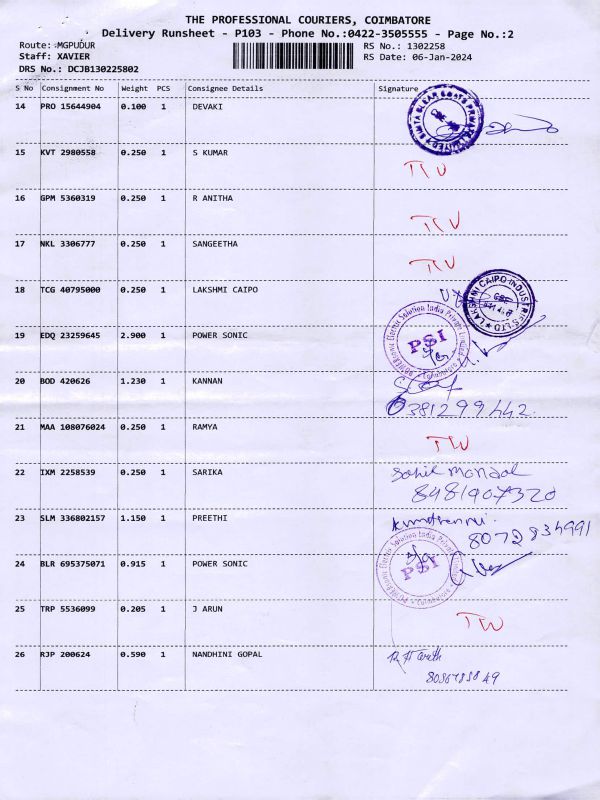 THE PROFESSIONAL COURIERS, COIMBATORE
Delivery Runsheet - P103 - Phone No.:0422-3505555 - Page No.:2
Route: MGPUDUR RS No.: 1302258
Staff: XAVIER RS Date: 06-Jan-2024
DRS No.: DCJB130225802
S No Consignment No Weight PCS Consignee Details Signature
14 PRO 15644904 0.100 1 DEVAKI
15 KVT 2980558 0.250 1 S KUMAR
16 GPM 5360319 0.250 1 R ANITHA
17 NKL 3306777 0.250 1 SANGEETHA
18 TCG 40795000 0.250 1 LAKSHMI CAIPO
LAKSHMI CAIPO INDUSTRIES LTD
19 EDQ 23259645 2.900 1 POWER SONIC
PSI
20 BOD 420626 1.230 1 KANNAN
21 MAA 108076024 0.250 1 RAMYA
22 IXM 2258539 0.250 1 SARIKA Sahil Mondal
8481907320
23 SLM 336802157 1.150 1 PREETHI
8072834991
24 BLR 695375071 0.915 1 POWER SONIC
PSI
25 TRP 5536099 0.205 1 J ARUN
26 RJP 200624 0.590 1 NANDHINI GOPAL